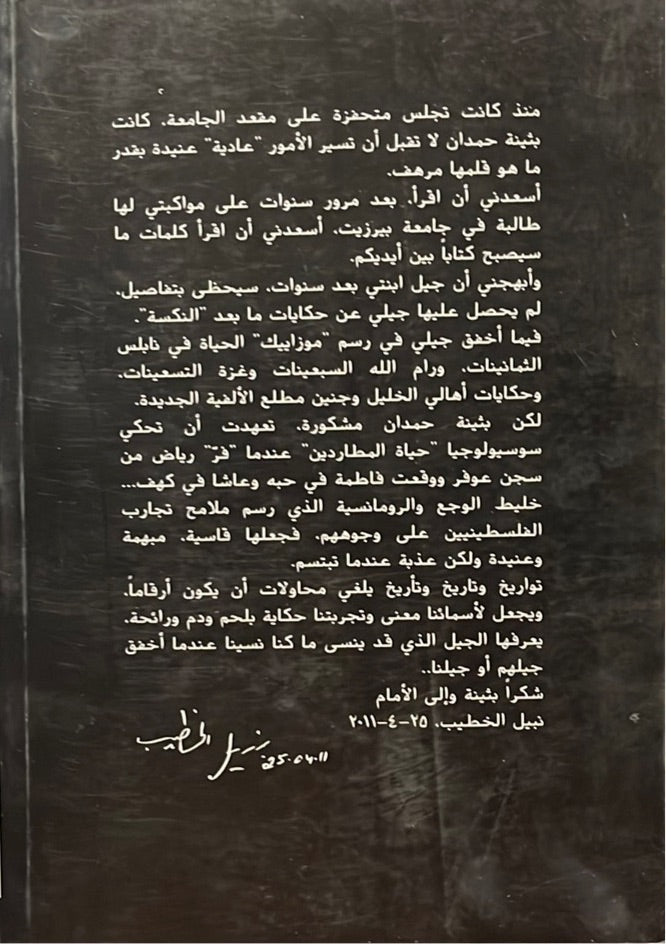 منذ كانت تجلس متحفزة على مقعد الجامعة، كانت
بثينة حمدان لا تقبل أن تسير الأمور "عادية" عنيدة بقدر
ما هو قلمها مرهف.
أسعدني أن اقرأ، بعد مرور سنوات على مواكبتي لها
طالبة في جامعة بيرزيت، أسعدني أن اقرأ كلمات ما
سيصبح كتاباً بين أيديكم.
وأبهجني أن جيل ابنتي بعد سنوات، سيحظى بتفاصيل،
لم يحصل عليها جيلي عن حكايات ما بعد "النكسة".
فيما أخفق جيلي في رسم "موزاييك" الحياة في نابلس
الثمانينات، ورام الله السبعينات وغزة التسعينات،
وحكايات أهالي الخليل وجنين مطلع الألفية الجديدة.
لكن بثينة حمدان مشكورة، تعهدت أن تحكي
سوسيولوجيا "حياة المطاردين" عندما "فرّ" رياض من
سجن عوفر ووقعت فاطمة في حبه وعاشا في كهف...
خليط الوجع والرومانسية الذي رسم ملامح تجارب
الفلسطينيين على وجوههم، فجعلها قاسية، مبهمة
وعنيدة ولكن عذبة عندما تبتسم.
تواريخ وتاريخ وتأريخ يلغي محاولات أن يكون أرقاماً،
ويجعل لأسمائنا معنى وتجربتنا حكاية بلحم ودم ورائحة،
يعرفها الجيل الذي قد ينسى ما كنا نسينا عندما أخفق
جيلهم أو جيلنا..
شكراً بثينة وإلى الأمام
نبيل الخطيب، ٢٥-٤-٢٠١١
نبيل الخطيب
25.04.11